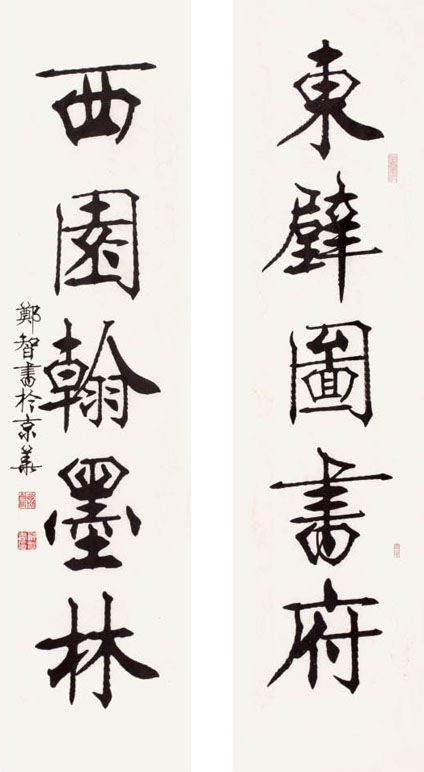 東壁圖書府
西園翰墨林
鄭智書於京華